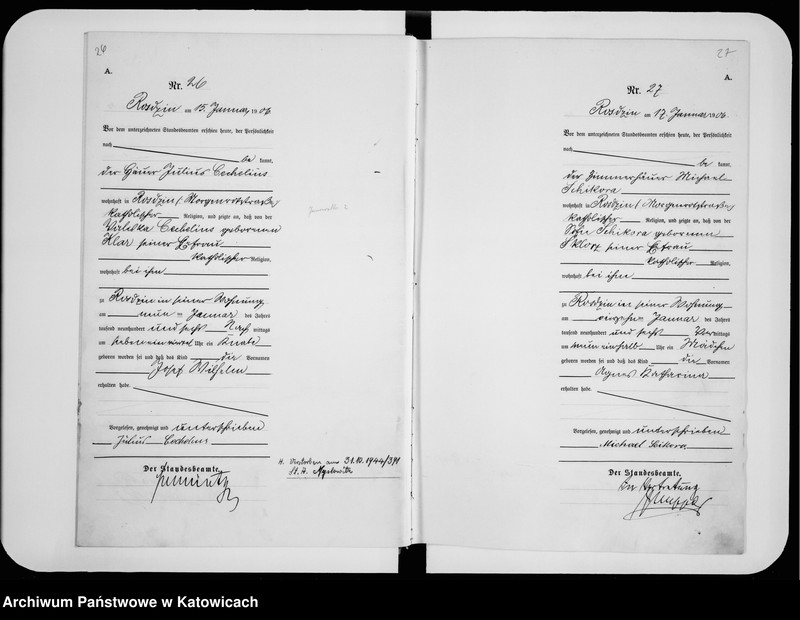 26
A.
Nr. 26
Rosdzin am 15. Januar 1906
Vor dem unterzeichneten Standesbeamten erschien heute, der Persönlichkeit
nach
be kannt,
der Häuer Julius Cechelius
wohnhaft in Rosdzin, Morgenrothstraße
katholischer Religion, und zeigte an, daß von der
Valeska Cechelius geborenen
Klar seiner Ehefrau
katholischer Religion,
wohnhaft bei ihm
zu Rosdzin in seiner Wohnung
am neun ten Januar des Jahres
tausend neunhundert und sechs Nach mittags
um sieben einviertel Uhr ein Knabe
geboren worden sei und daß das Kind die Vornamen
Josef Wilhelm
erhalten habe.
Vorgelesen, genehmigt und unterschrieben
Julius Cechelius
Der Standesbeamte.
H. Verstorben am 31.10.1944/391
St. A. Myslowitz
27
A.
Nr. 27
Rosdzin am 17. Januar 1906
Vor dem unterzeichneten Standesbeamten erschien heute, der Persönlichkeit
nach
be kannt,
der Zimmerhäuer Michael
Schikora
wohnhaft in Rosdzin, Morgenrothstraße
katholischer Religion, und zeigte an, daß von der
Sofie Schikora geborenen
Sklorz seiner Ehefrau
katholischer Religion,
wohnhaft bei ihm
zu Rosdzin in seiner Wohnung
am vierzehnten Januar des Jahres
tausend neunhundert und sechs Vor mittags
um neun einhalb Uhr ein Mädchen
geboren worden sei und daß das Kind die Vornamen
Agnes Katharina
erhalten habe.
Vorgelesen, genehmigt und unterschrieben
Michael Sikora
Der Standesbeamte.
In Vertretung
Archiwum Państwowe w Katowicach